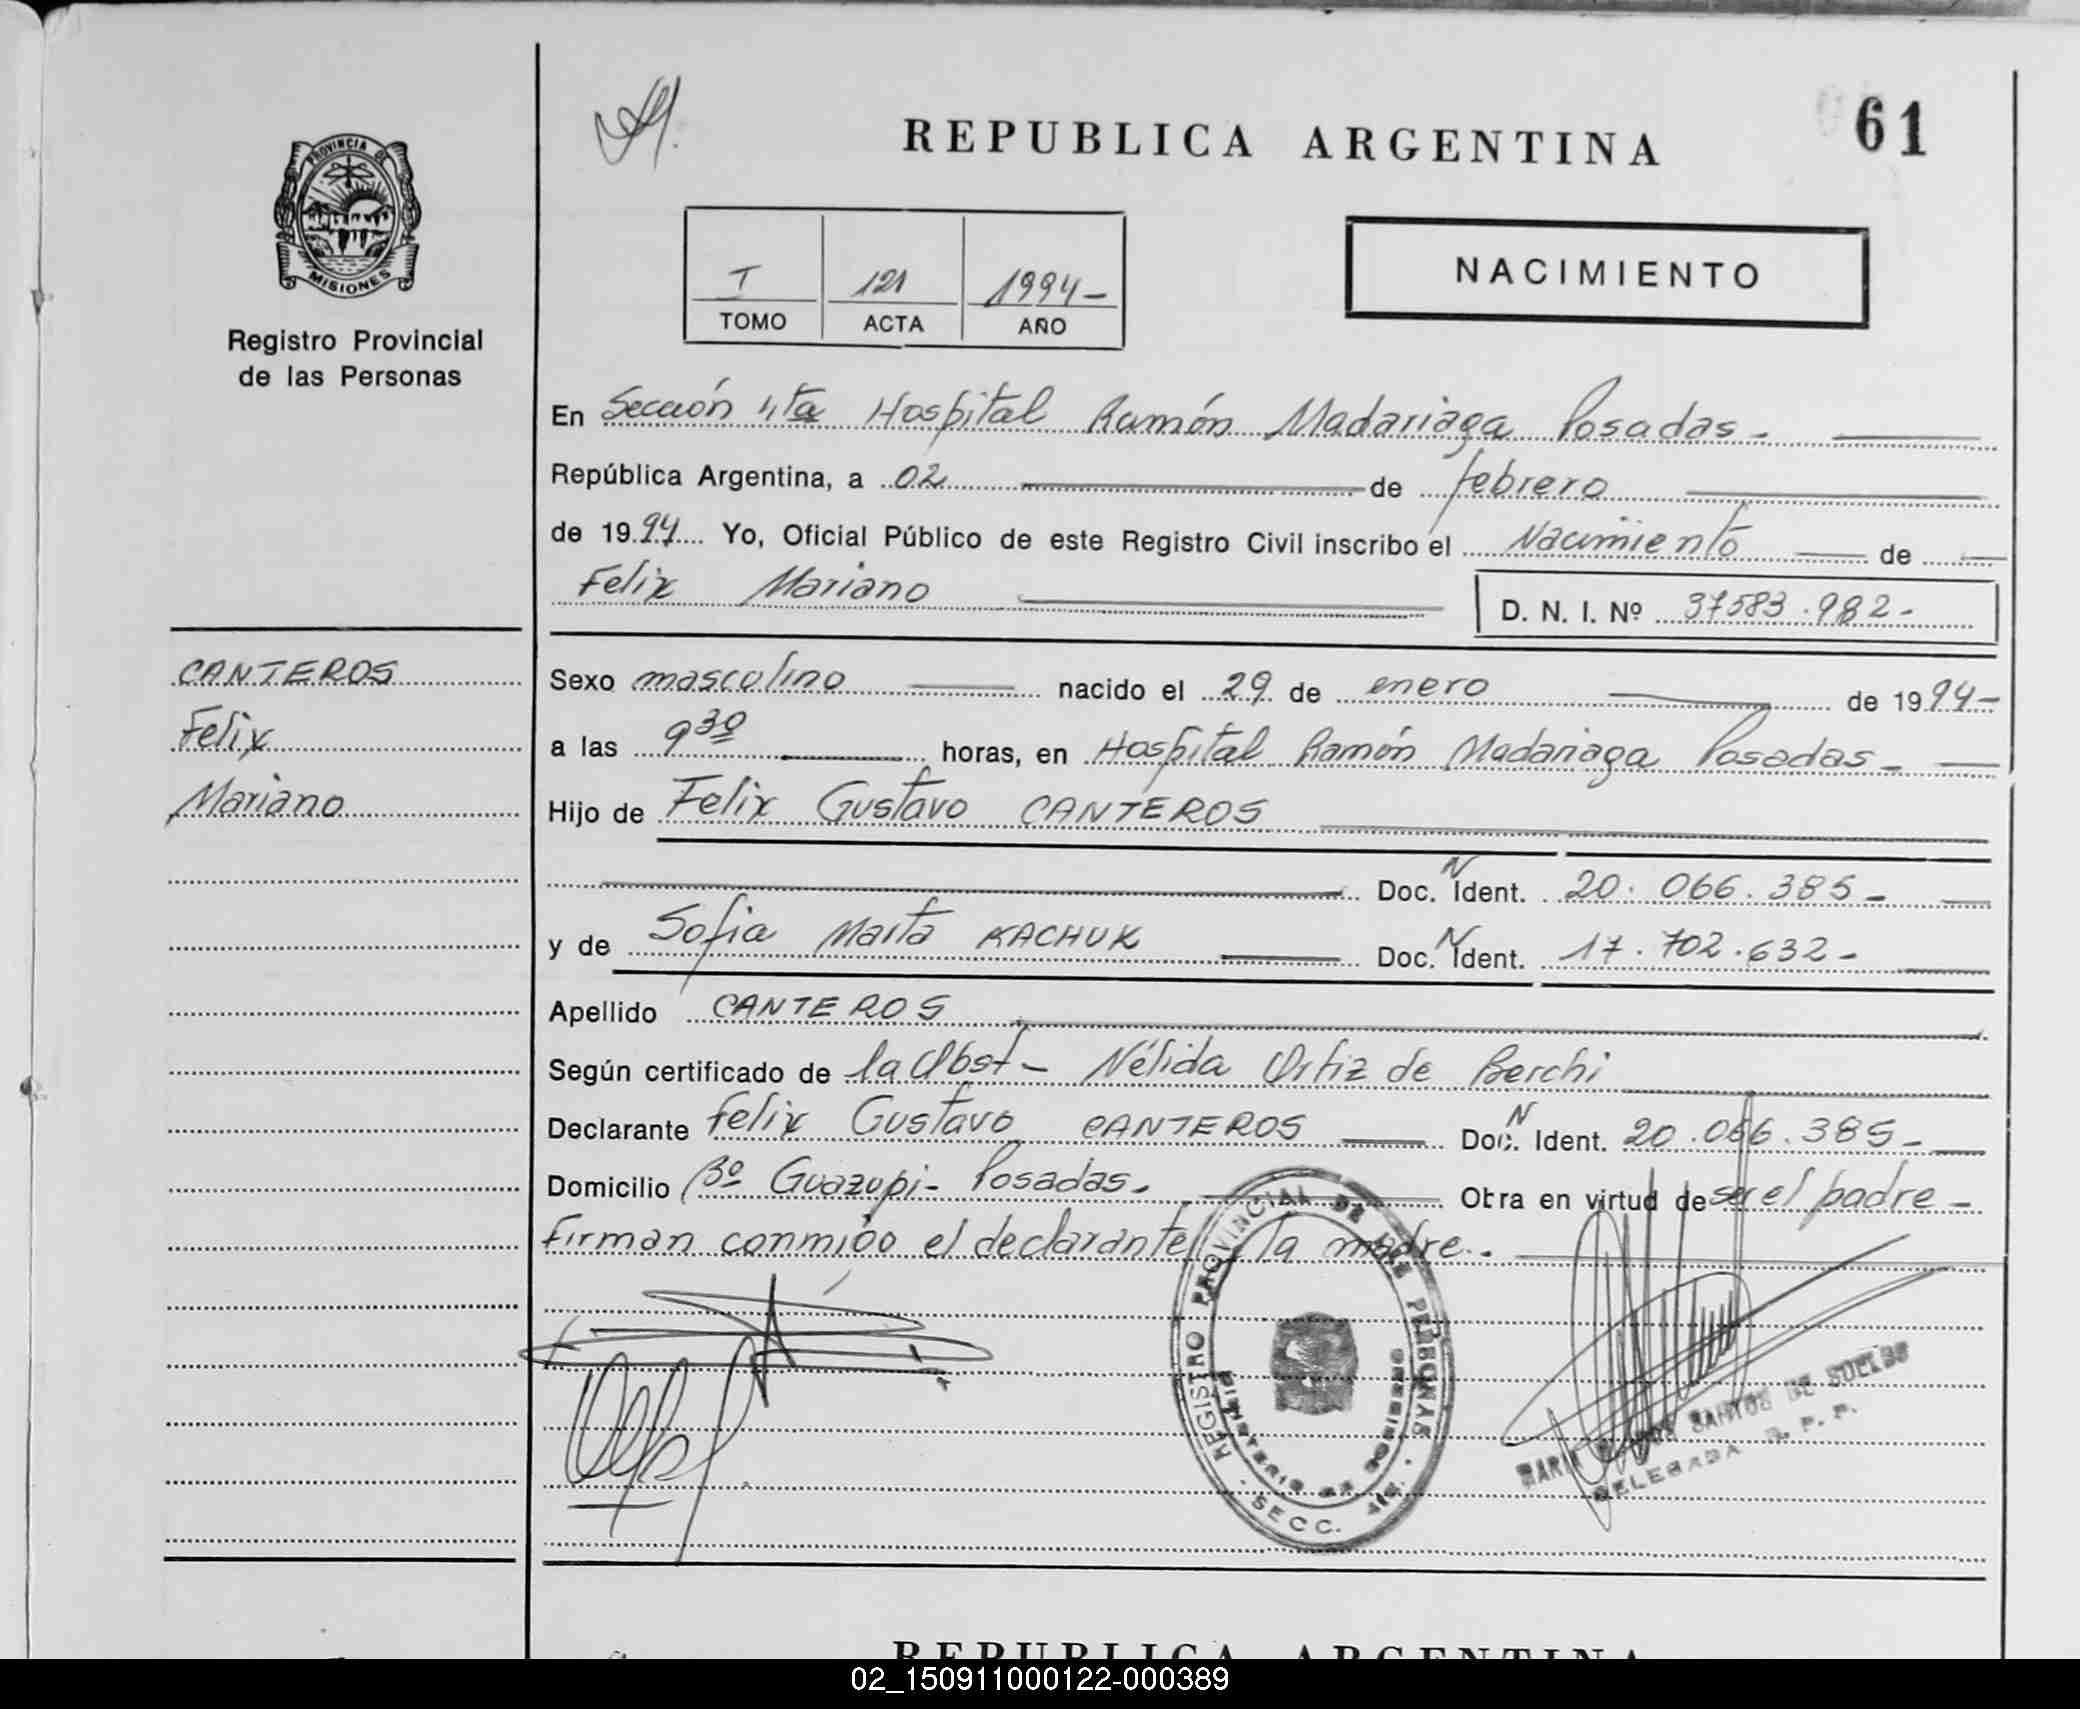 REPUBLICA ARGENTINA
61
PROVINCIA DE
MISIONES
Registro Provincial
de las Personas
I 121 1994-
TOMO ACTA AÑO
NACIMIENTO
En Sección 4ta Hospital Ramón Madariaga Posadas.
República Argentina, a 02 de febrero
de 1994 Yo, Oficial Público de este Registro Civil inscribo el Nacimiento de
Felix Mariano
D. N. I. Nº 37583.982-
CANTEROS
Felix
Mariano
Sexo masculino nacido el 29 de enero de 1994-
a las 9 30 horas, en Hospital Ramón Madariaga Posadas-
Hijo de Felix Gustavo CANTEROS
Doc. N Ident. 20.066.385-
y de Sofia Marta KACHUK Doc. N Ident. 17.702.632-
Apellido CANTEROS
Según certificado de la Obst- Nélida Ortiz de Berchi
Declarante Felix Gustavo CANTEROS Doc. N Ident. 20.066.385-
Domicilio Bº Guazupi- Posadas. Obra en virtud de ser el padre-
Firman conmigo el declarante y la madre.-
REGISTRO PROVINCIAL DE LAS PERSONAS
MINISTERIO DE GOBIERNO
SECC. 4ta.
MARIA SANTOS DE
DELEGADA R. P. P.
REPUBLICA ARGENTINA
02_150911000122-000389